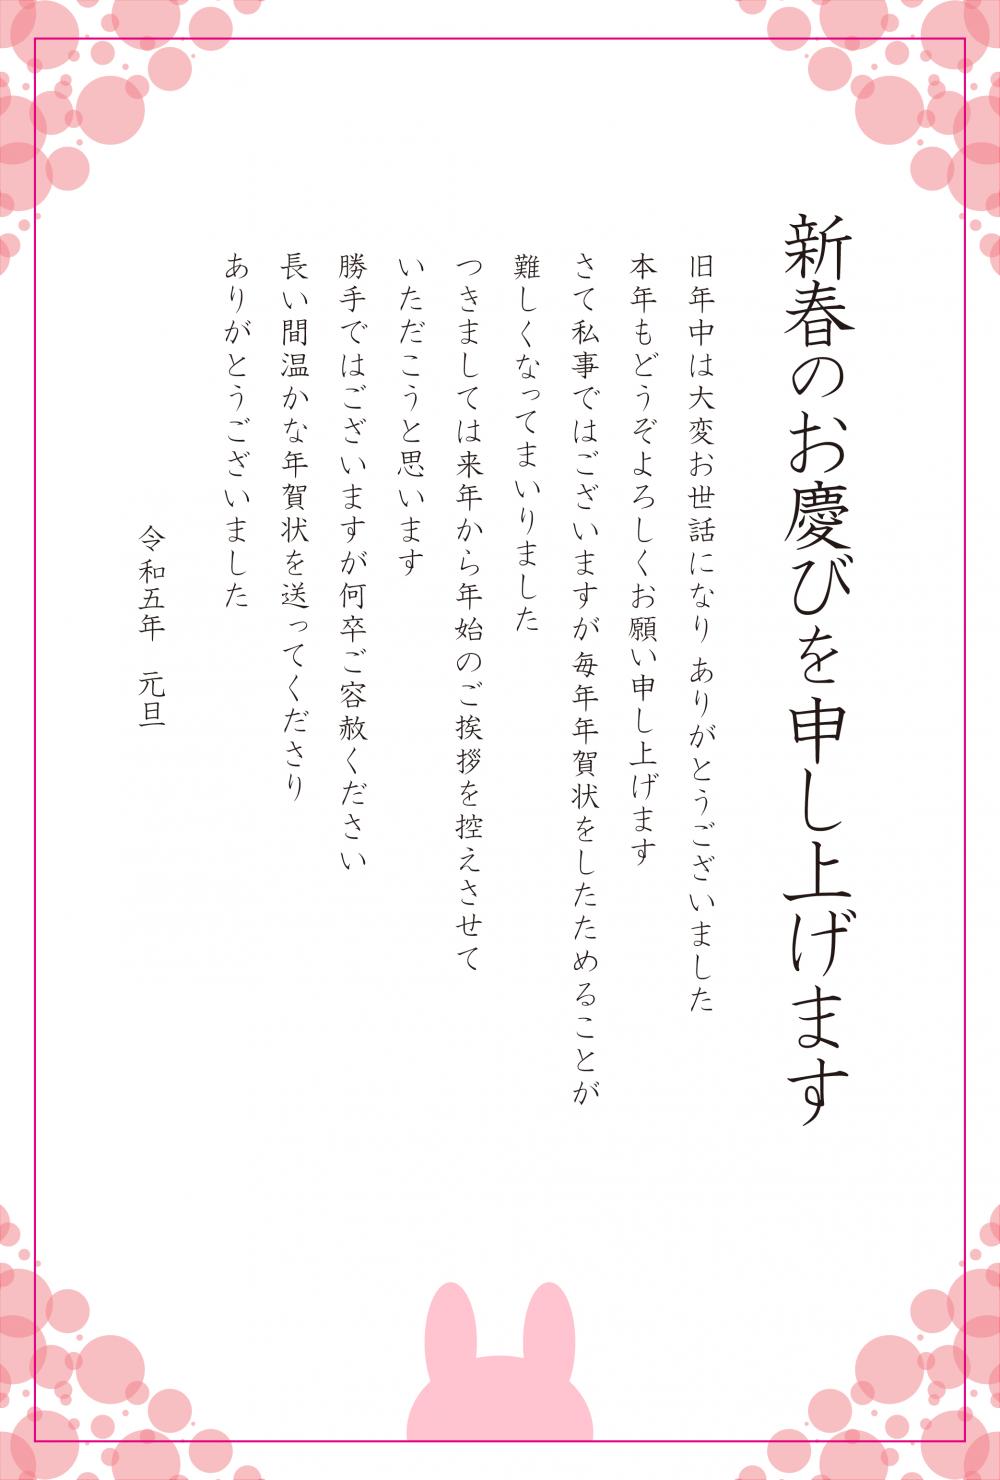 新春のお慶びを申し上げます
旧年中は大変お世話になり ありがとうございました
本年もどうぞよろしくお願い申し上げます
さて私事ではございますが 毎年年賀状をしたためることが
難しくなってまいりました
つきましては来年から年始のご挨拶を控えさせて
いただこうと思います
勝手ではございますが何卒ご容赦ください
長い間温かな年賀状を送ってくださり
ありがとうございました
令和五年　元旦